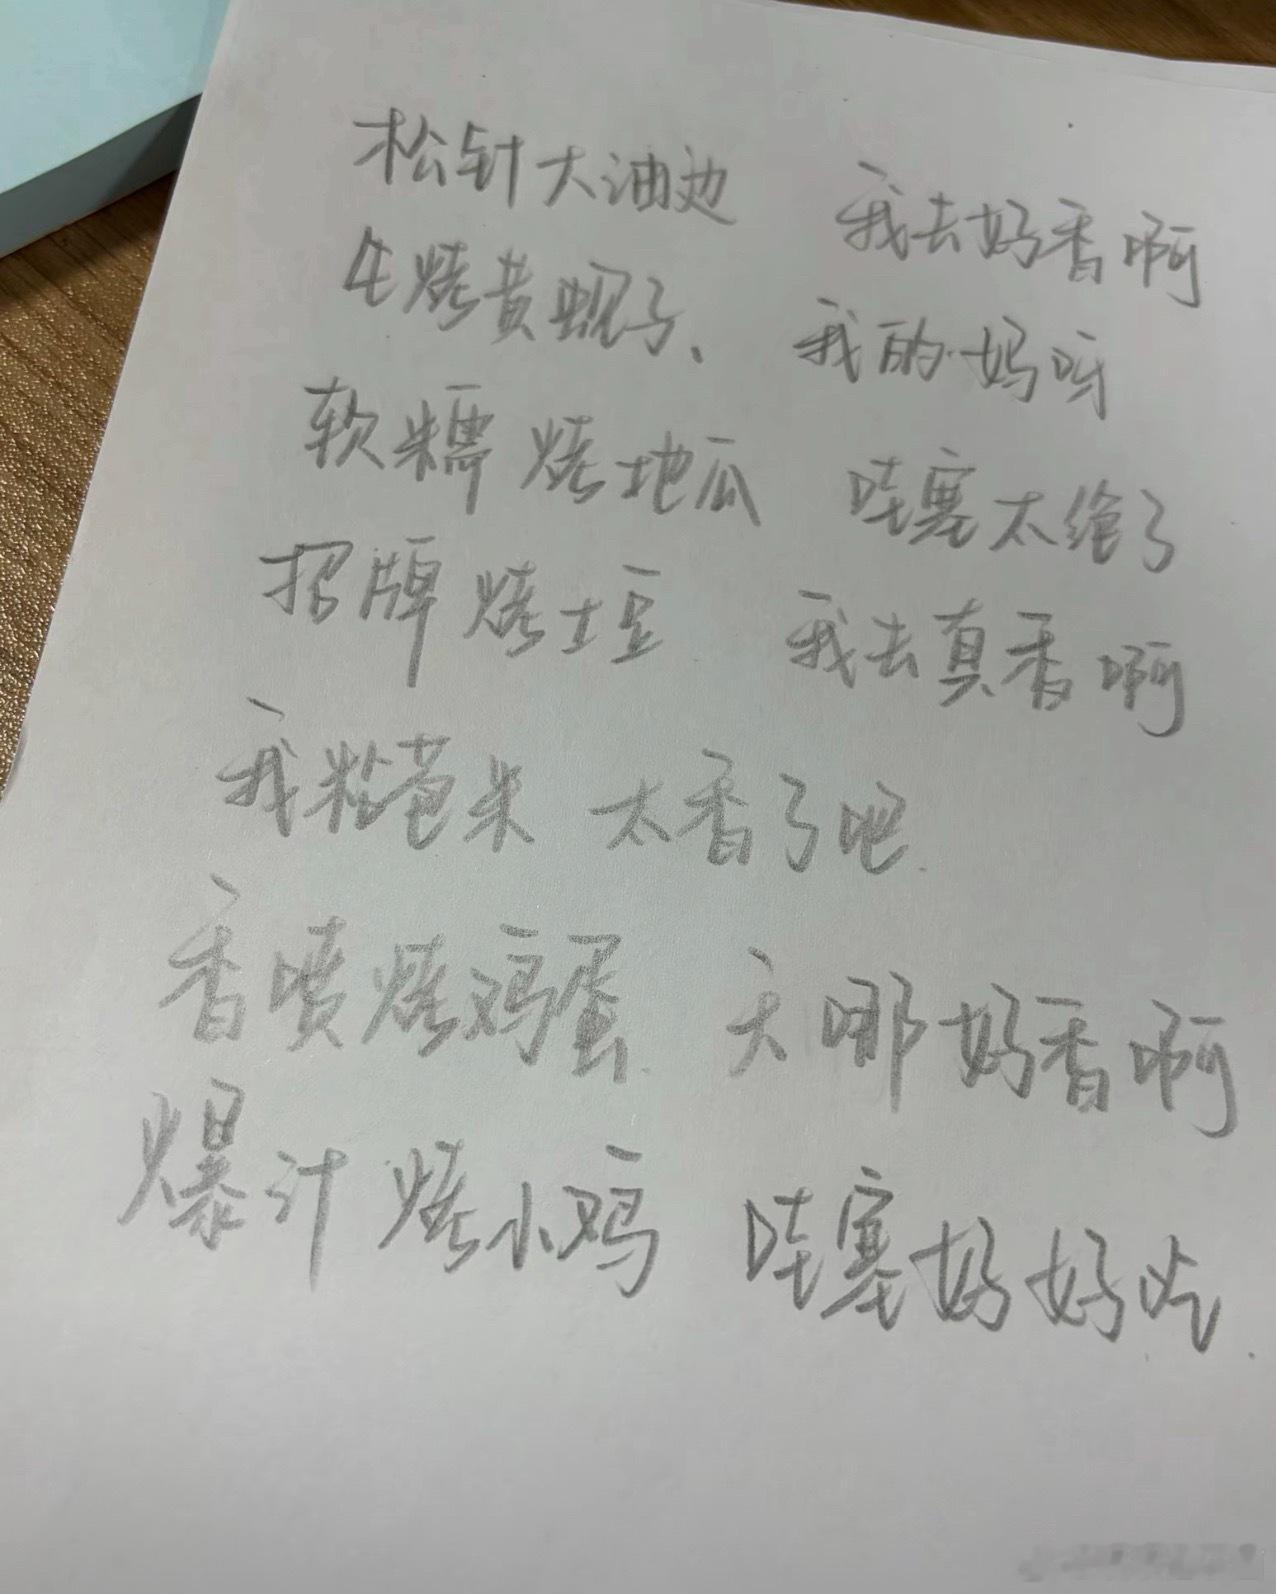 松针大油边 我去好香啊
生烤黄蚬子、 我的妈呀
软糯 烤地瓜 哇塞太绝了
招牌 烤土豆 我去真香啊
我粘苞米 太香了吧
香喷烤鸡蛋 天哪好香啊
爆汁 烤小鸡 哇塞好好吃